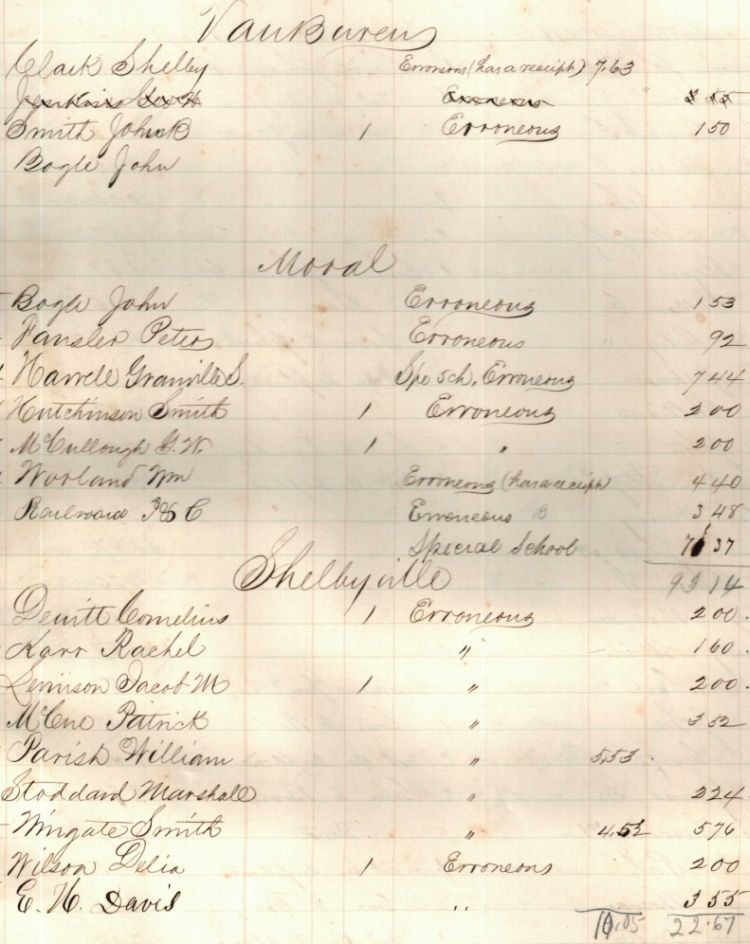 VanBuren
Clark Shelby Erroneous (has a receipt) 7.63
Erroneous 55
Smith John B 1 Erroneous 150
Bogle John
Moral
Bogle John Erroneous 153
Fansler Peter Erroneous 92
Harrell Granville S. Spe Sch, Erroneous 744
Hutchinson Smith 1 Erroneous 200
McCullough G.W. 1 " 200
Worland Wm Erroneous (has a receipt) 440
Railroad Erroneous 348
Special School 7 37
Shelbyville 93 14
Dewitt Cornelius 1 Erroneous 200.
Karr Rachel " 160.
Lennison Jacob M 1 " 200.
McCue Patrick " 352
Parish William " 5.53.
Stoddard Marshall " 224
Wingate Smith " 4.52 576
Wilson Delia 1 Erroneous 200
E. H. Davis " 355
10.05 22.67